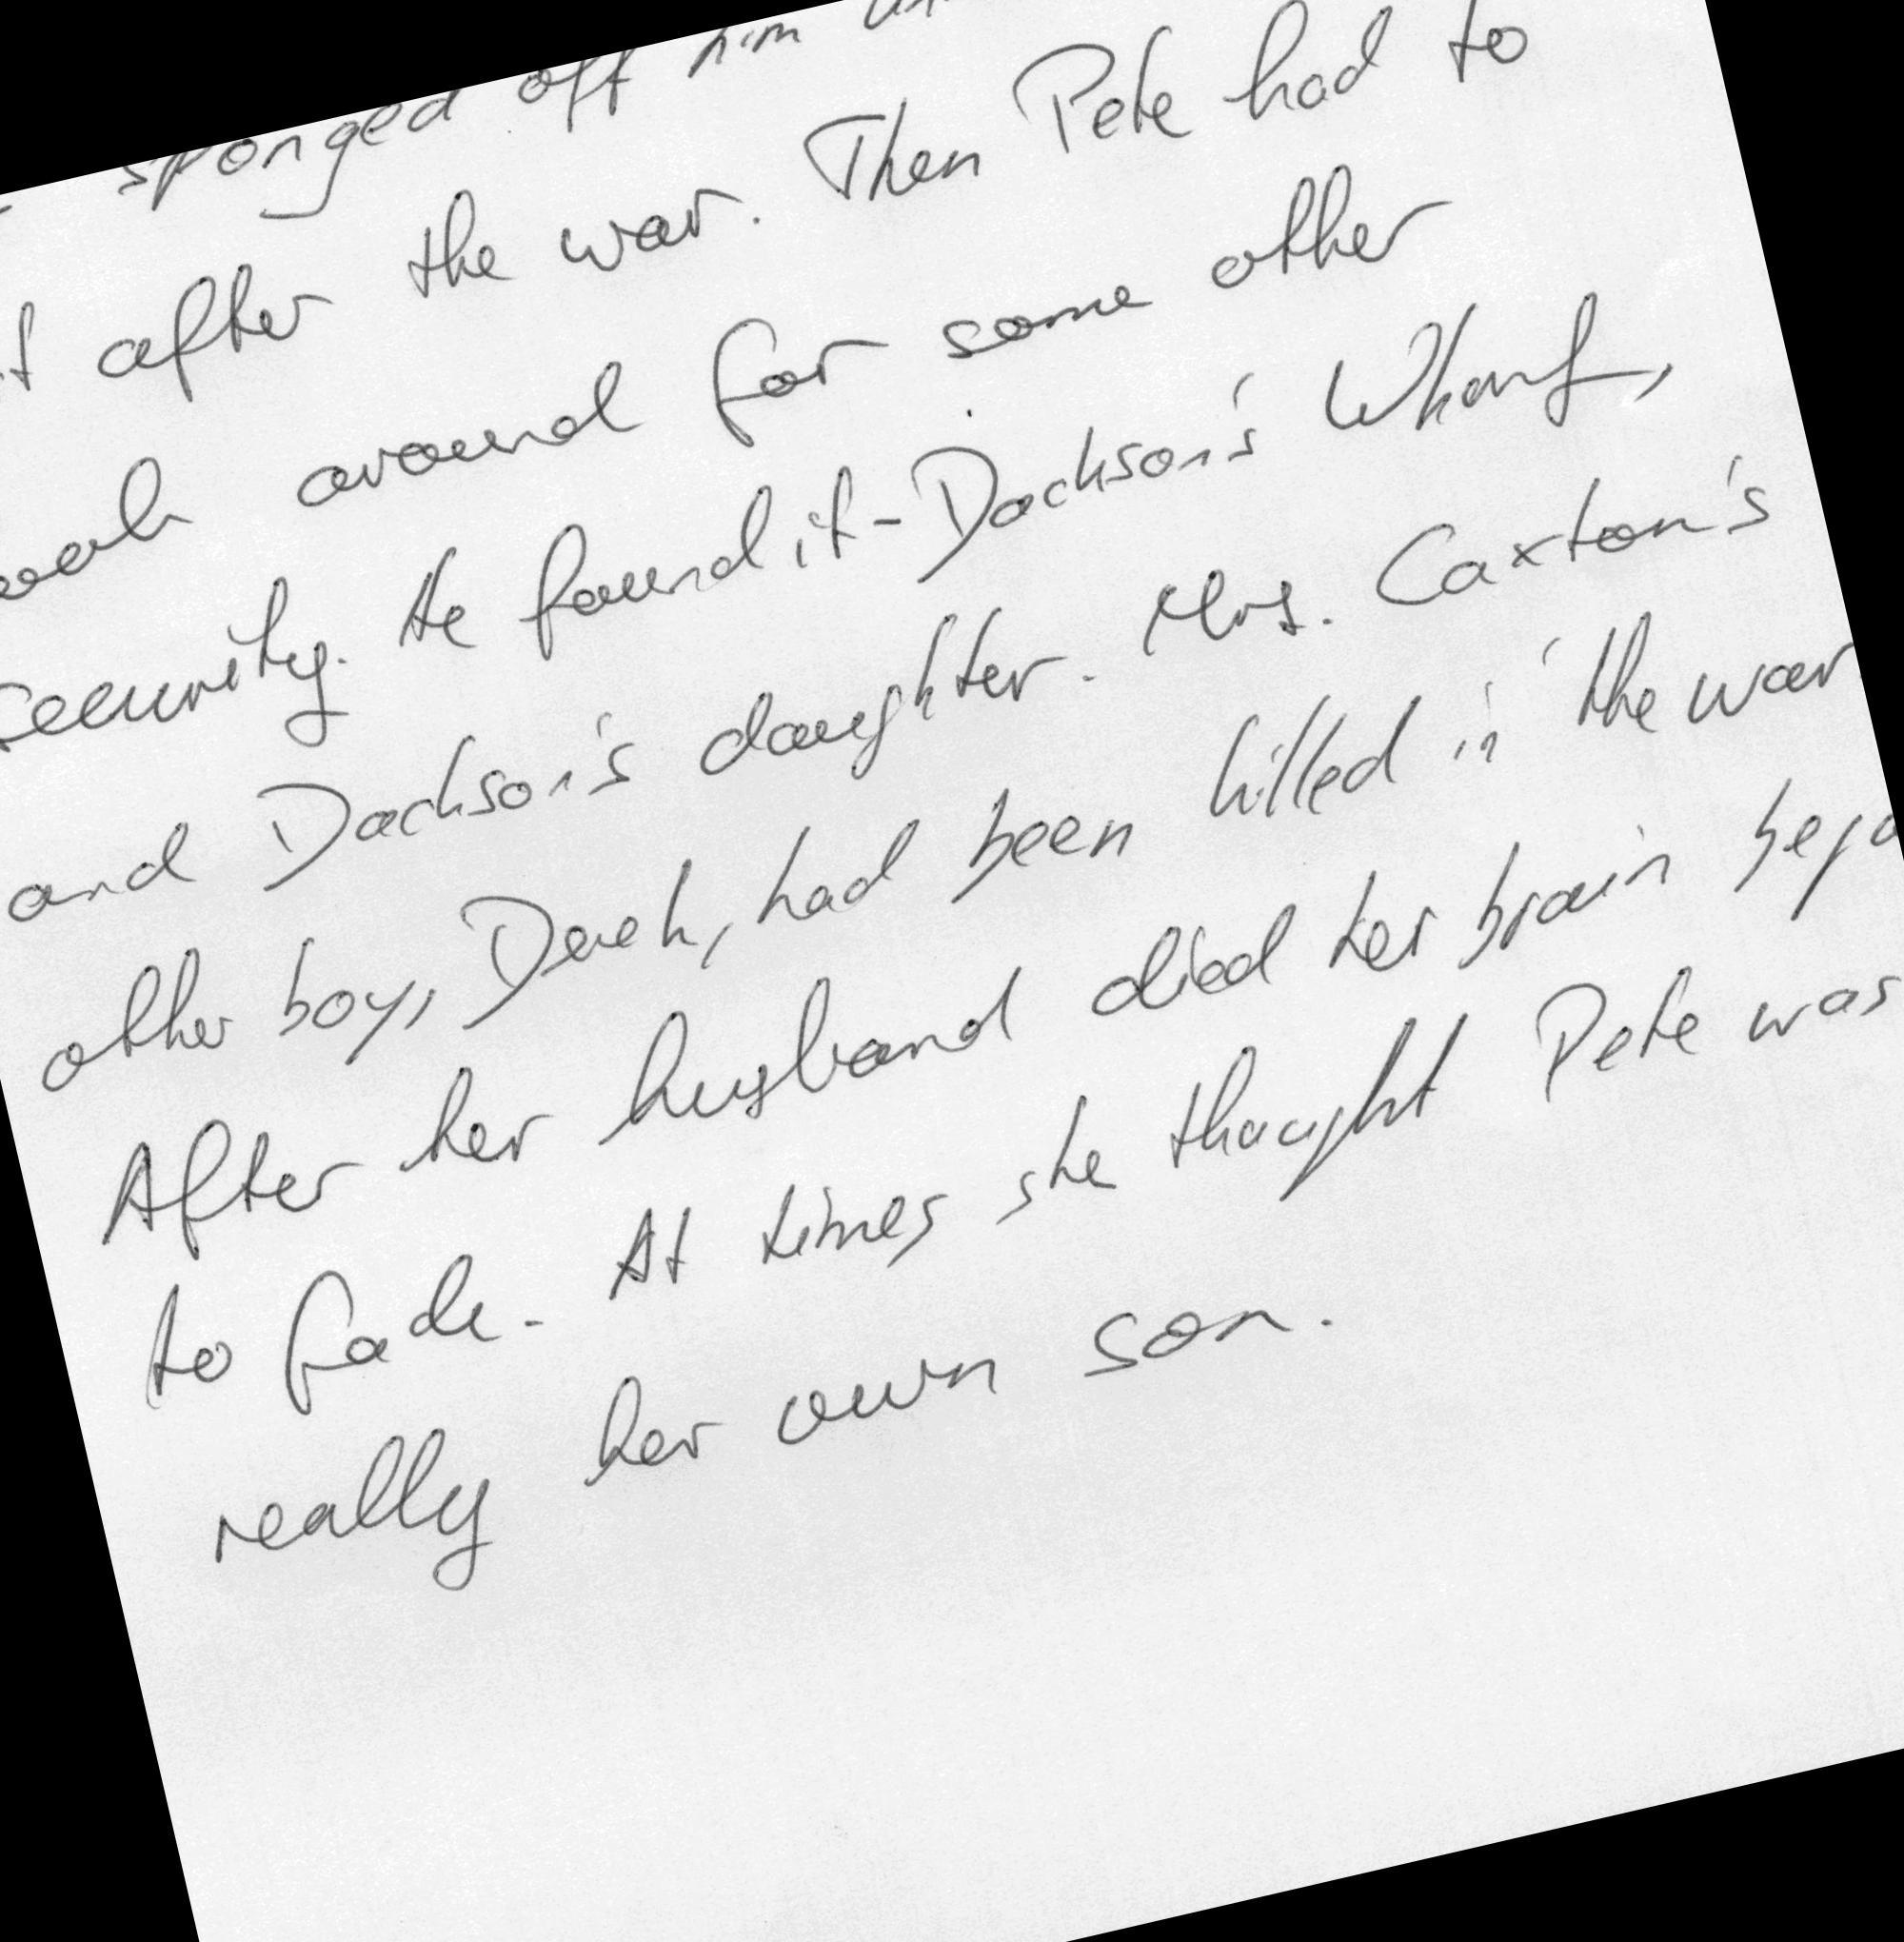 sponged off him
after the war. Then Pete had to
around for some other
security. He found it - Dockson's Wharf,
and Dackson's daughter. Mrs. Caxton's
other boy, Derek, had been killed in the war.
After her husband died her brain
to fade. At times she thought Pete was
really her own son.